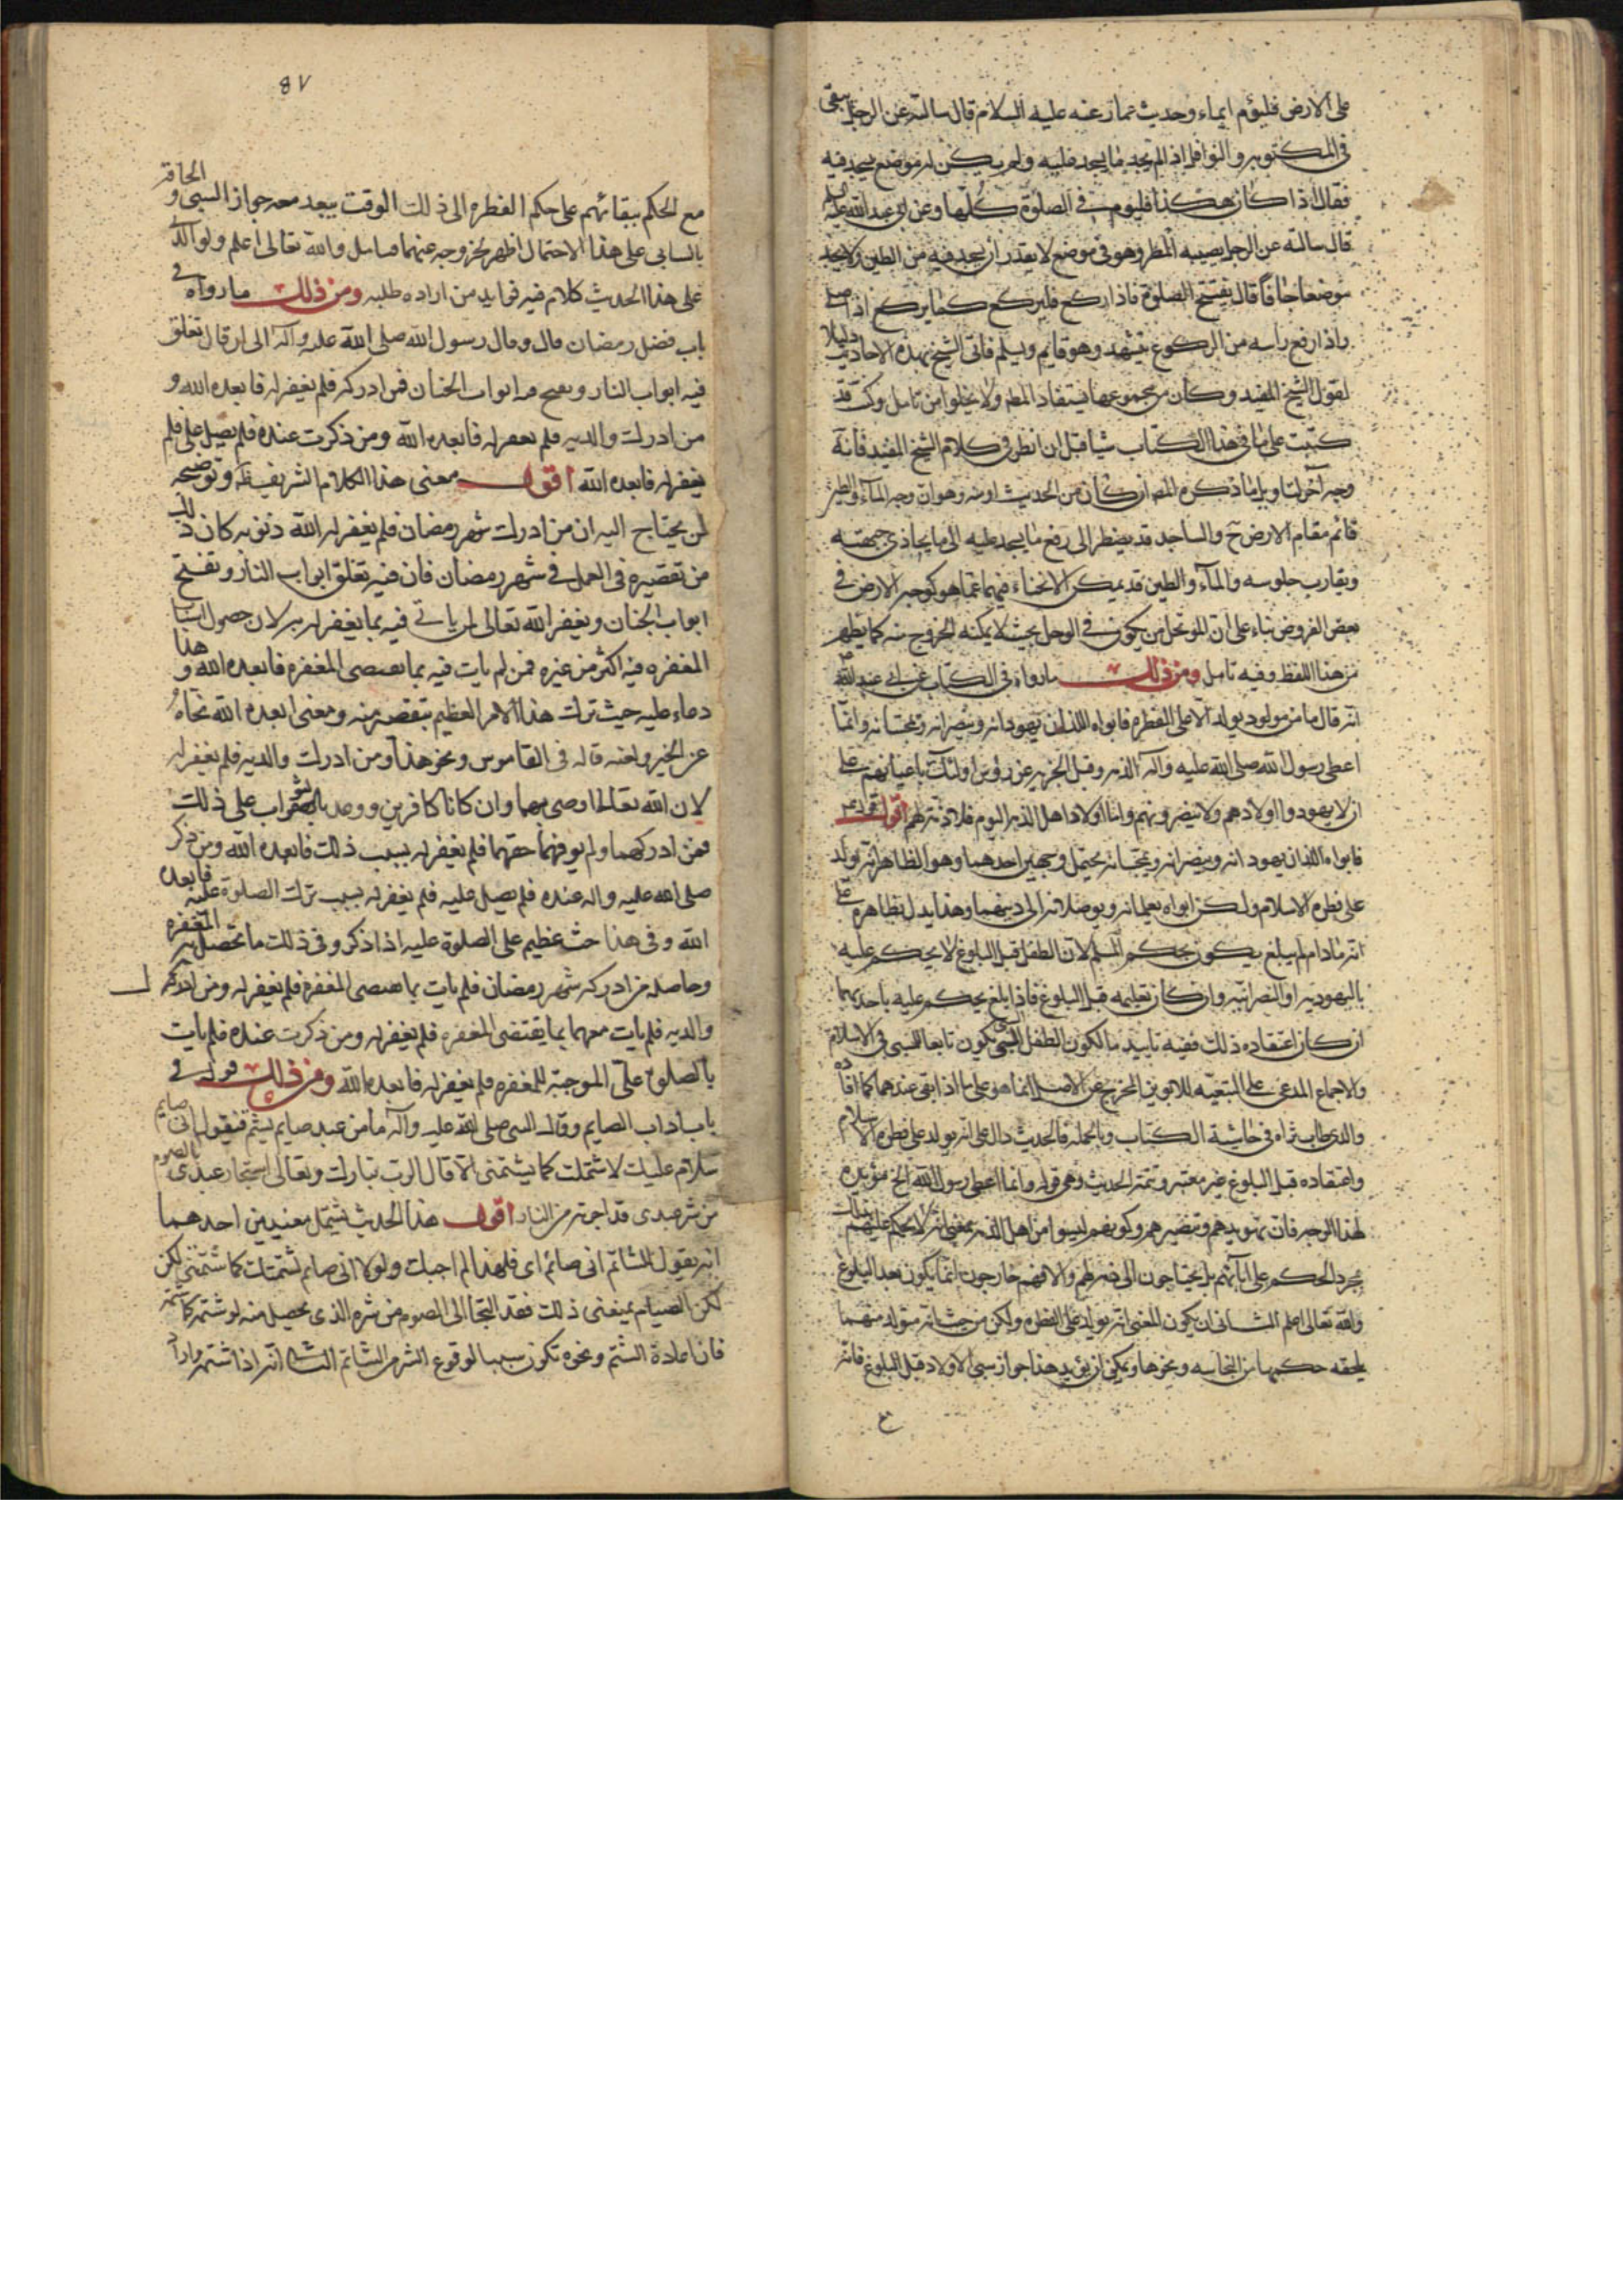 على الارض فليؤم ايماء وحديث عمار عنه عليه السلام قال سالته عن الرجل
في المكتوبه والنوافل اذا لم يجد ما يسجد عليه ولم يكن له موضع يسجد فيه
فقال اذا كان هكذا فليوم في الصلوة كلها وعن ابي عبد الله عليه
قال سالته عن الرجل يصيبه المطر وهو في موضع لا يقدر ان يسجد فيه من الطين ولا يجد
موضعا جافا قال يفتتح الصلوة فاذا ركع فليركع كما يركع اذا صلى
واذا رفع راسه من الركوع فيتشهد وهو قايم ويسلم فاتى الشيخ بهذه الاحاديث دليلا
لقول الشيخ المفيد وكان من مجموعها يستفاد المطم ولا يخلوا من تامل وكنت قد
كتبت على ما في هذا الكتاب شيا قبل ان انظر في كلام الشيخ المفيد فانه
وجه آخر لتاويل ما ذكره المصم ان كان من الحديث او منه وهو ان وجه المآء والطين
قائم مقام الارض ح والساجد قد يضطر الى رفع ما يسجد عليه الى ما يحاذي جبهته
ويقارب جلوسه والمآء والطين قد يمكن الانحناء فيهما عما هو كوجه الارض في
بعض الفروض بناء على ان الموتحل من يكون في الوحل بحيث لا يمكنه الخروج منه كما يظهر
من هذا اللفظ وفيه تامل ومن ذلك ما رواه في الكتاب عن ابي عبد الله
انه قال ما من مولود يولد الا على الفطره فابواه اللذان يهودانه وينصرانه ويمجسانه وانما
اعطى رسول الله صلى الله عليه وآله الذمه وقبل الجزيه عن رؤس اولئك باعيانهم على
ان لا يهودوا اولادهم ولا ينصرونهم واما اولاد اهل الذمه اليوم فلا ذمة لهم اقول قوله
فابواه اللذان يهودانه وينصرانه ويمجسانه يحتمل وجهين احدهما وهو الظاهر انه يولد
على فطره الاسلام ولكن ابواه يعلمانه ويوصلانه الى دينهما وهذا يدل بظاهره على
انه ما دام لم يبلغ يكون بحكم المسلم لان الطفل قبل البلوغ لا يحكم عليه
باليهوديه او النصرانيه وان كان تعليمه قبل البلوغ فاذا بلغ يحكم عليه باحدهما
ان كان اعتقاده ذلك ففيه تاييد ما لكون الطفل المسبي يكون تابعا للسبي في الاسلام
والاجماع المدعى على التبعيه للابوين المخرج عن الاصل انما هو على ما اذا بقى عندهما كما افاده
والدي طاب ثراه في حاشية الكتاب وبالجمله فالحديث دال على انه يولد على فطره الاسلام
واعتقاده قبل البلوغ غير معتبر وتتمة الحديث وهي قوله وانما اعطى رسول الله الخ مؤيده
لهذا الوجه فان تهويدهم وتنصيرهم وكونهم ليسوا من اهل الذمه بمعنى انه لا يحكم عليهم بذلك
بمجرد الحكم على آبائهم بل يحتاجون الى ذمه لهم والا فهم خارجون انما يكون بعد البلوغ
والله تعالى اعلم الثاني ان يكون المعنى انه يولد على الفطره ولكن من حيث انه متولد منهما
يلحقه حكمهما من النجاسه ونحوها ويمكن ان يؤيد هذا جواز سبي الاولاد قبل البلوغ فانه
ع
٨٧
مع الحكم ببقائهم على حكم الفطره الى ذلك الوقت يبعد معه جواز السبي والحاقه
بالسابي على هذا الاحتمال اظهر لخروجه عنهما فتامل والله تعالى اعلم ولوالدي
على هذا الحديث كلام فيه فوايد من اراده طلبه ومن ذلك ما رواه في
باب فضل رمضان قال وقال رسول الله صلى الله عليه وآله الى ان قال تغلق
فيه ابواب النار وتفتح فيه ابواب الجنان فمن ادركه فلم يغفر له فابعده الله و
من ادرك والديه فلم يغفر له فابعده الله ومن ذكرت عنده فلم يصل علي فلم
يغفر له فابعده الله اقول معنى هذا الكلام الشريف وتوضيحه
لمن يحتاج اليه ان من ادرك شهر رمضان فلم يغفر له الله ذنوبه كان ذلك
من تقصيره في العمل في شهر رمضان فان فيه تغلق ابواب النار وتفتح
ابواب الجنان ويغفر الله تعالى لمن ياتي فيه بما يغفر له به لان حصول اسباب
المغفره فيه اكثر من غيره فمن لم يات فيه بما يقتضى المغفره فابعده الله وهذا
دعاء عليه حيث ترك هذا الامر العظيم بتقصير منه ومعنى ابعده الله نحاه
عن الخير ولعنه قاله في القاموس ونحو هذا ومن ادرك والديه فلم يغفر له
لان الله تعالى اوصى بهما وان كانا كافرين ووعد بالثواب على ذلك
فمن ادركهما ولم يوفهما حقهما فلم يغفر له بسبب ذلك فابعده الله ومن ذكر
صلى الله عليه واله عنده فلم يصل عليه فلم يغفر له بسبب ترك الصلوة عليه فابعده
الله وفي هذا حث عظيم على الصلوة عليه اذا ذكر وفي ذلك ما تحصل به المغفره
وحاصله من ادركه شهر رمضان فلم يات بما يقتضى المغفره فلم يغفر له ومن ادرك
والديه فلم يات معهما بما يقتضى المغفره فلم يغفر له ومن ذكرت عنده فلم يات
بالصلوة علي الموجبة للمغفره فلم يغفر له فابعده الله ومن ذلك قوله في
باب اداب الصايم وقال النبي صلى الله عليه وآله ما من عبد صايم يشتم فيقول اني صايم
سلام عليك لا اشتمك كما يشتمني الا قال الرب تبارك وتعالى استجار عبدي بالصوم
من شر عبدي قد اجرته من النار اقول هذا الحديث يشتمل معنيين احدهما
انه يقول للشاتم اني صائم اي فلهذا لم اجبك ولولا اني صايم لشتمتك كما شتمتني لكن
لكن الصيام يمنعني ذلك فقد التجا الى الصوم من شره الذي يحصل منه لو شتمه كما شتمه
فان اعادة الشتم ونحوه تكون سببا لوقوع الشر من الشاتم الثاني انه اذا شتمه واراد